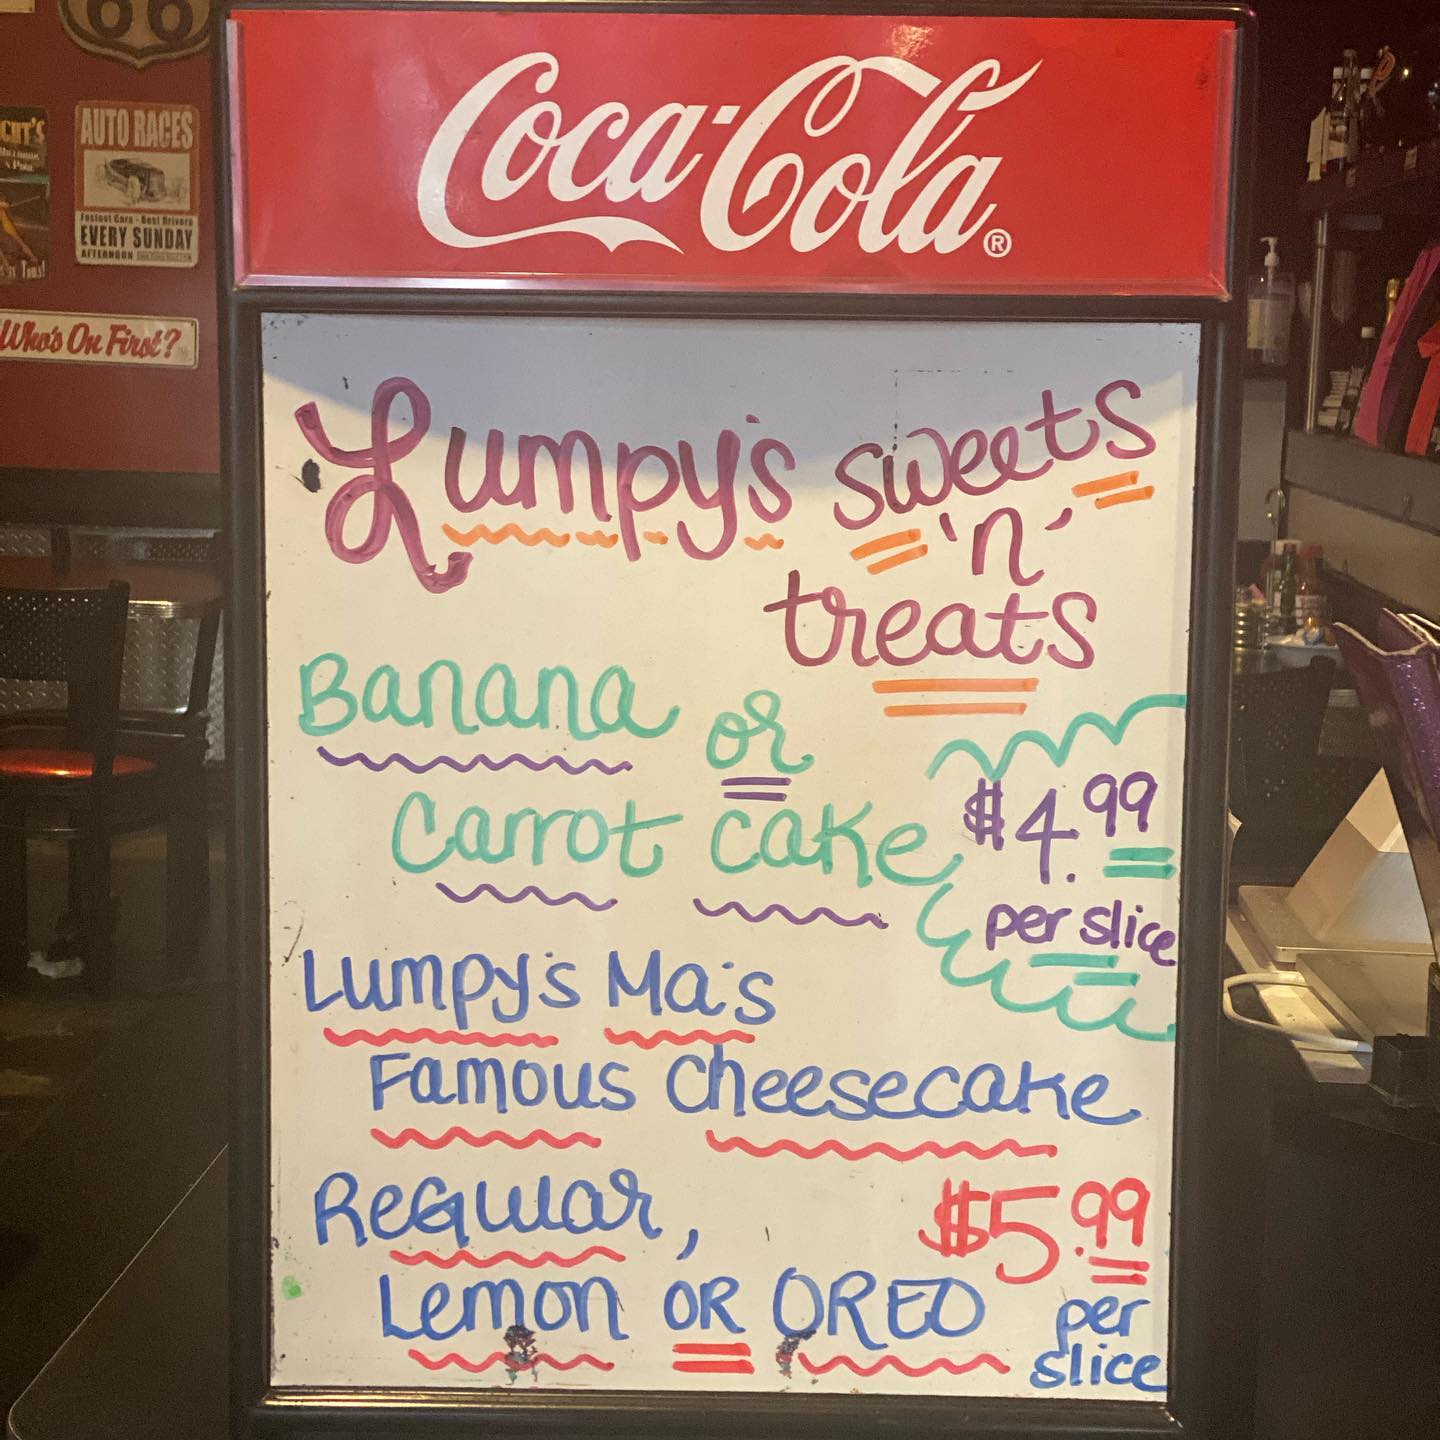 66
AUTO RACES
Fastest Cars - Best Drivers
EVERY SUNDAY
AFTERNOON
Who's On First?
Coca-Cola®
Lumpy's sweets
'n'
treats
Banana or
Carrot cake
$4.99
per slice
Lumpy's Ma's
Famous Cheesecake
Regular,
$5.99
Lemon OR OREO
per
slice